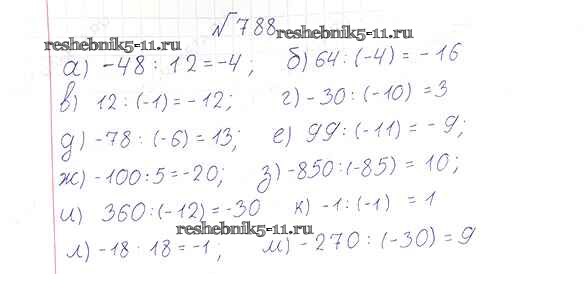 № 788
reshebnik5-11.ru reshebnik5-11.ru
а) -48 : 12 = -4 ; б) 64 : (-4) = -16
в) 12 : (-1) = -12; г) -30 : (-10) = 3
д) -78 : (-6) = 13; е) 99 : (-11) = -9;
ж) -100 : 5 = -20; з) -850 : (-85) = 10;
и) 360 : (-12) = -30 к) -1 : (-1) = 1
reshebnik5-11.ru
л) -18 : 18 = -1 ; м) -270 : (-30) = 9